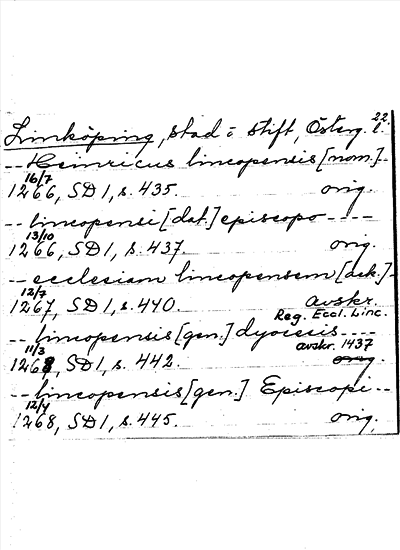 22.
Linköping, stad o stift, Österg. l.
-- Heinricus lincopensis [nom.] --
16/7
1266, SD 1, s. 435. orig.
-- lincopensi [dat.] episcopo ----
13/10
1266, SD 1, s. 437. orig.
-- ecclesiam lincopensem [ack.] --
12/7
1267, SD 1, s. 440. avskr.
Reg. Eccl. Linc.
-- lincopensis [gen.] dyocesis ----
11/3 avskr. 1437
1268, SD 1, s. 442. orig.
-- lincopensis [gen.] Episcopi --
12/4
1268, SD 1, s. 445. orig.